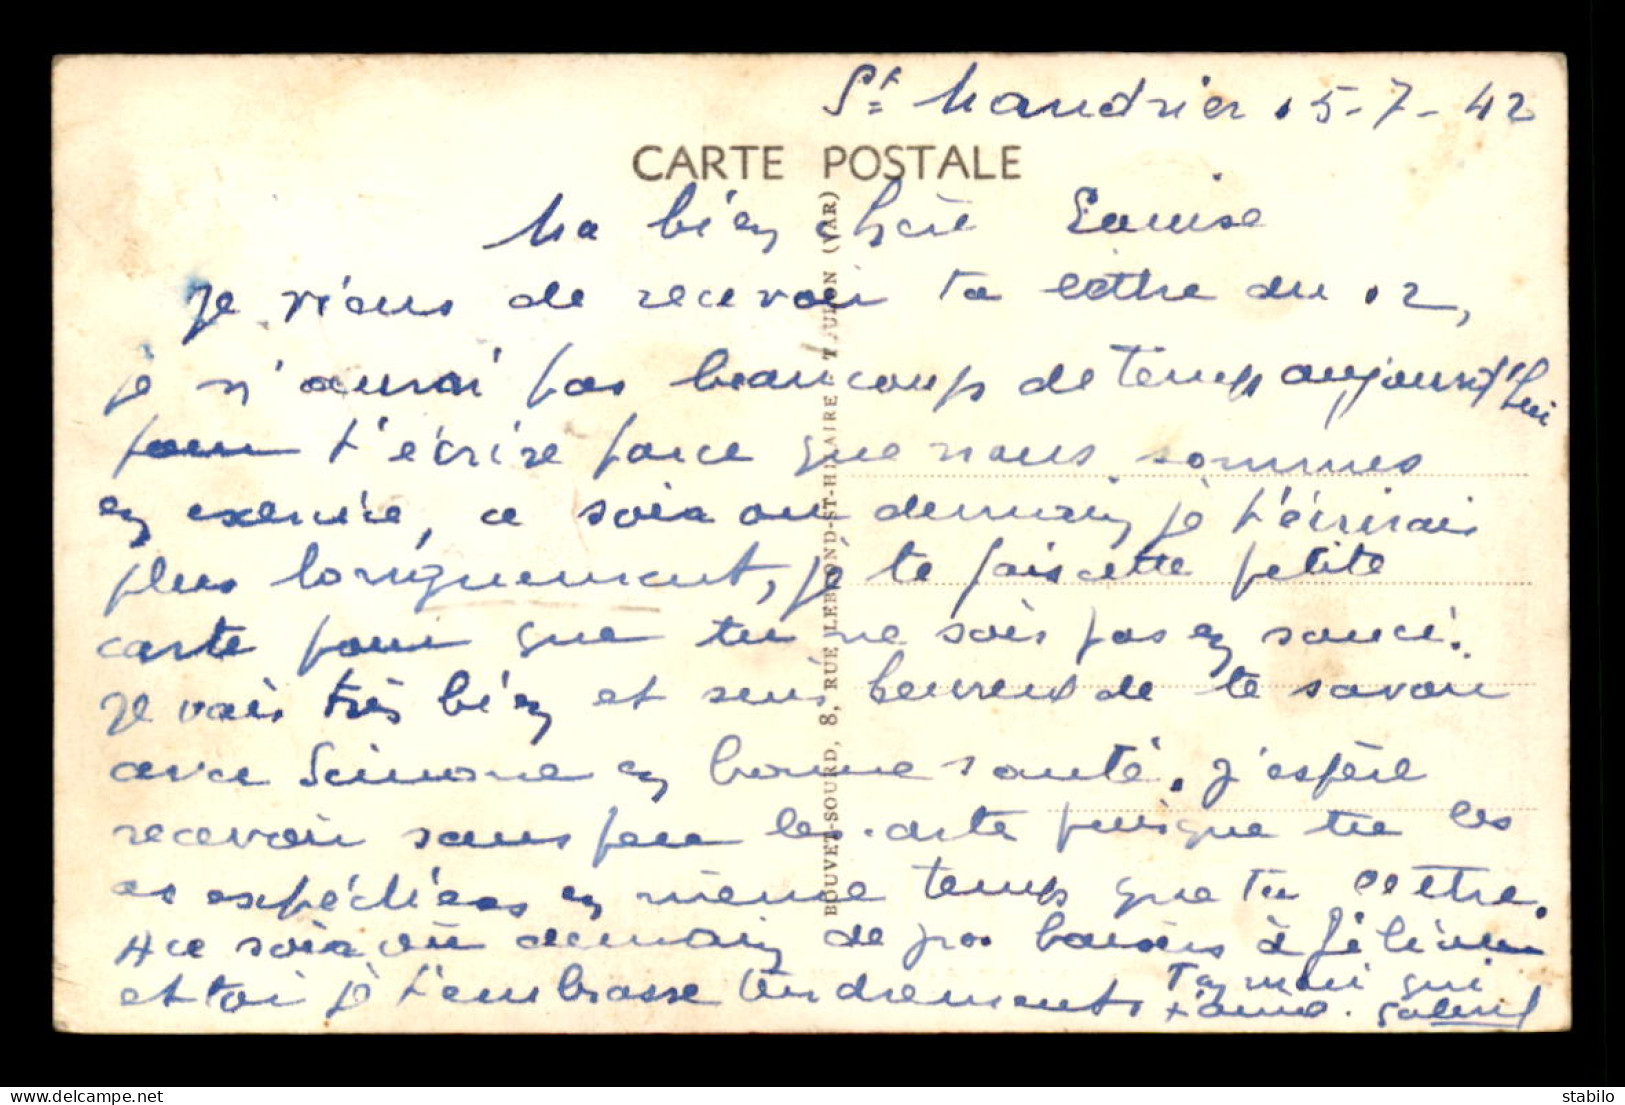 St Mandrier 15-7-42
CARTE POSTALE
Ma bien chère Louise
je viens de recevoir ta lettre du 12,
je n'aurai pas beaucoup de temps aujourd'hui
pour t'écrire parce que nous sommes
en exercice, ce soir ou demain je t'écrirais
plus longuement, je te fais cette petite
carte pour que tu ne sois pas en souci.
Je vais très bien et suis heureux de te savoir
avec Simone en bonne santé. J'espère
recevoir sans peu les carte puisque tu les
as expédiées en même temps que ta lettre.
A ce soir ou demain de gros baisers à
et toi je t'embrasse tendrements Ton mari qui
t'aime. Gabriel
BOUVET-SOURD, 8, RUE LEBLOND-ST-HILAIRE - TOULON (VAR)
stabilo
https://www.delcampe.net